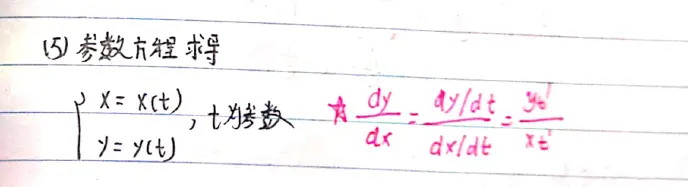 (5) 参数方程求导
{ x = x(t) , t为参数 ☆ dy/dx = dy/dt / dx/dt = yt' / xt'
y = y(t)